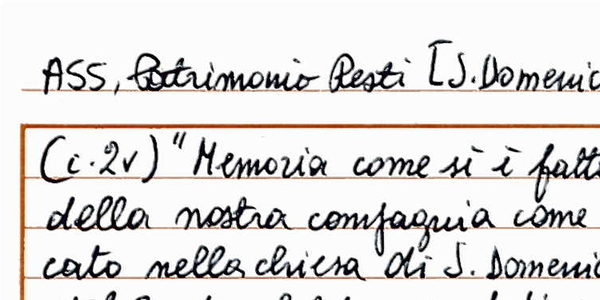 ASS, Patrimonio Resti [S. Domenic
(c. 2v) "Memoria come si è fatt
della nostra compagnia come
cato nella chiesa di S. Domenic